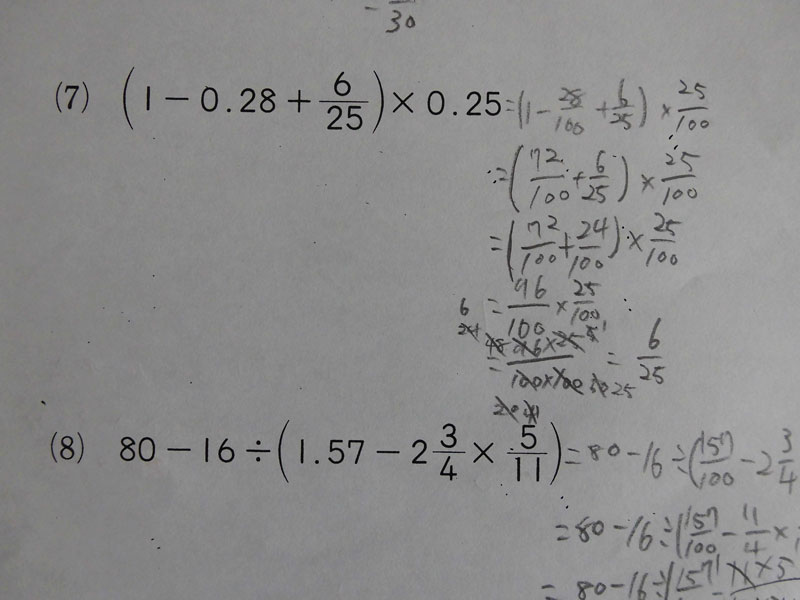 30
(7) (1 − 0.28 + 6/25) × 0.25 = (1 − 28/100 + 6/25) × 25/100
= (72/100 + 6/25) × 25/100
= (72/100 + 24/100) × 25/100
= 96/100 × 25/100
= 96×25/100×100 = 6/25
(8) 80 − 16 ÷ (1.57 − 2 3/4 × 5/11) = 80 − 16 ÷ (157/100 − 2 3/4
= 80 − 16 ÷ (157/100 − 11/4 ×
= 80 − 16 ÷ (157 − 11×5